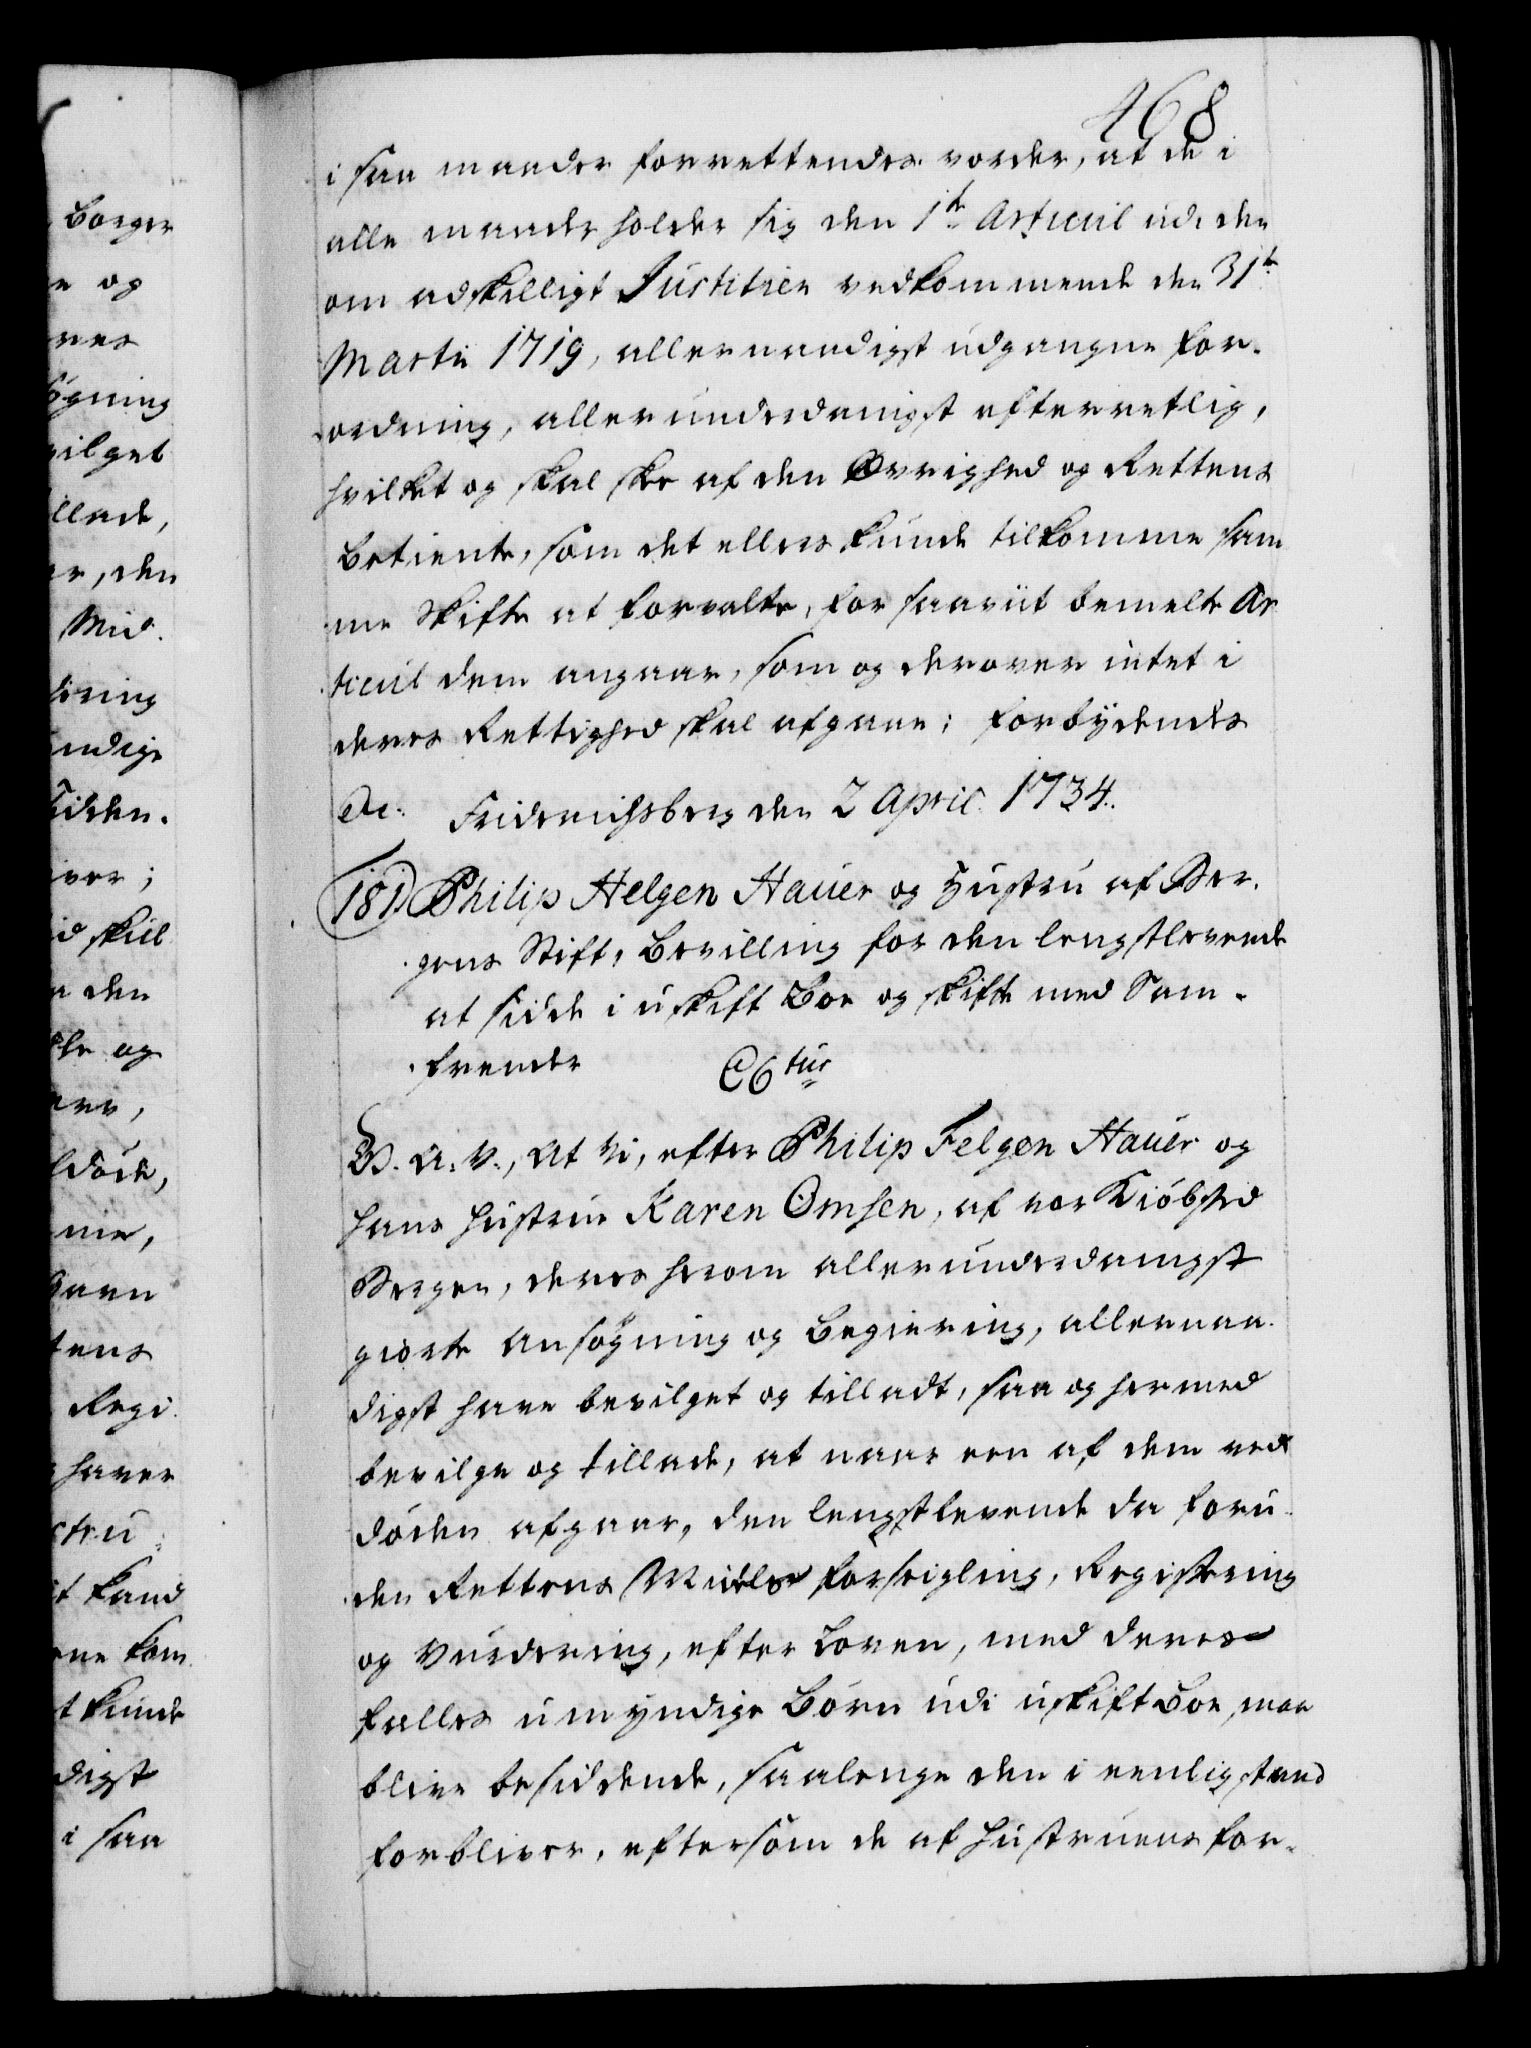 468
i saa maader forrettendes vorder, at de i
alle maader holder sig den 1te Articul udi den
om adskilligt Justitien vedkommende den 31te
Martii 1719, allernaadigst udgangne For-
ordning, allerunderdanigst efterretlig,
hvilket og skal skee af den Øvrighed og Rettens
Betiente, som det ellers kunde tilkomme sam
me Skifte at forvalte, for saaviit bemelte Ar
ticul dem angaar, som og derover intet i
deres Rettighed skal afgaae; Forbydendes
etc: Friderichsberg den 2 April 1734.
181) Philip Helgen Hauer og Hustru af Ber-
gens Stift, Bevilling for den lengstlevende
at sidde i uskift Boe og skifte med Sam-
frender C6tus
B. A. V., At Vi, efter Philip Felgen Hauer og
hans Hustrue Karen Omsen, af vor Kiøbsted
Bergen, deres herom allerunderdanigst
giorte Ansøgning og Begiering, allernaa-
digst have bevilget og tilladt, saa og hermed
bevilge og tillade, at naar een af dem ved
døden afgaar, den lengstlevende da foru-
den Rettens Midels Forseigling, Registering
og Vurdering, efter Loven, med deres
felles umyndige Børn udi uskift Boe, maa
blive besiddende, saalenge den i eenlig stand
forbliver, eftersom de af Hustruens for-
Borger
e og
res
øgning
vilget
illade,
er, den
Mid-
ering
endige
Tiden.
iver;
id skul
a den
ple og
ere,
døde,
mie,
tens
Regi-
haver
stru
it kand
ene kom
t kunde
digst
i saa